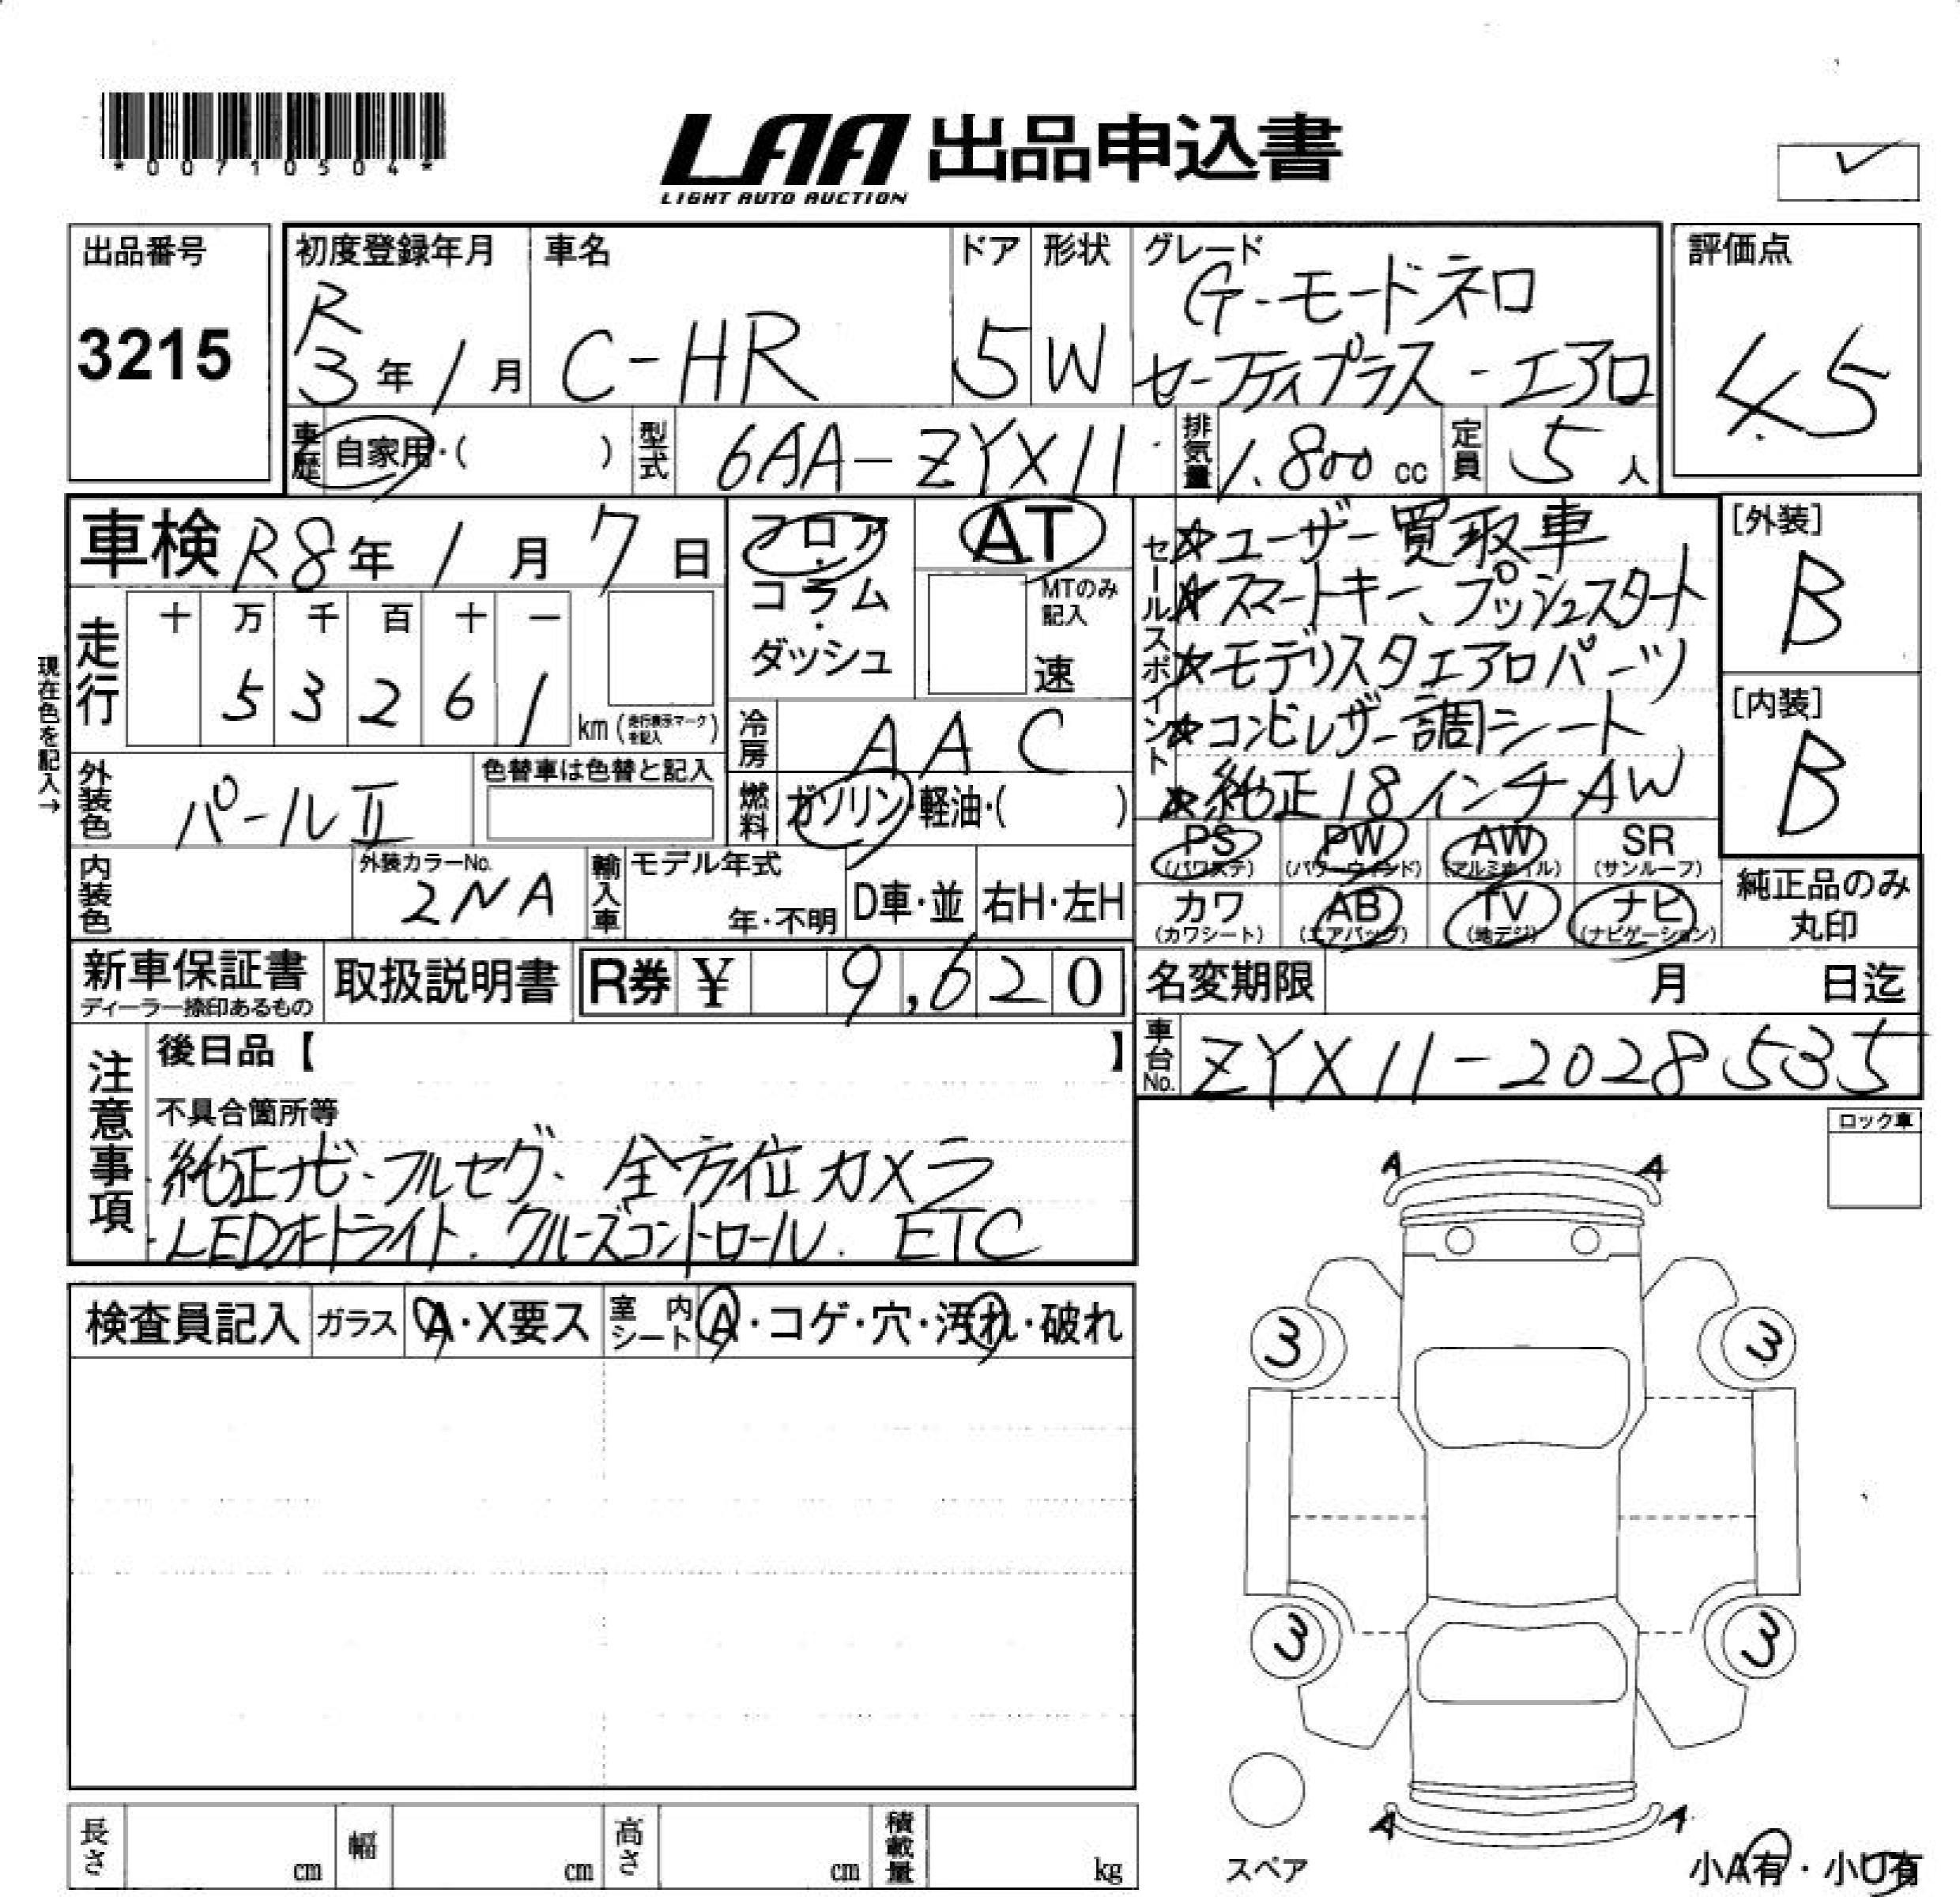 *00710504*
LAA 出品申込書
LIGHT AUTO AUCTION
出品番号
3215
初度登録年月
R
3年1月
車名
C-HR
ドア
5
形状
W
グレード
G-モードネロ
セーフティプラス-エアロ
評価点
4.5
車歴
自家用・( )
型式
6AA-ZYX11
排気量
1.800cc
定員
5人
車検 R8年1月7日
フロア
・
コラム
・
ダッシュ
AT
MTのみ
記入
速
セールスポイント
☆ユーザー買取車
☆スマートキー、プッシュスタート
☆モデリスタエアロパーツ
☆コンビレザー調シート
☆純正18インチAW
[外装]
B
[内装]
B
現在色を記入→
走行
十 万 千 百 十 一
5 3 2 6 1
km(走行表示マークを記入)
冷房
AAC
燃料
ガソリン・軽油・( )
外装色
パールⅡ
色替車は色替と記入
内装色
外装カラーNo.
2NA
輸入車
モデル年式
年・不明
D車・並
右H・左H
PS
(パワステ)
PW
(パワーウィンド)
AW
(アルミホイル)
SR
(サンルーフ)
カワ
(カワシート)
AB
(エアバッグ)
TV
(地デジ)
ナビ
(ナビゲーション)
純正品のみ
丸印
新車保証書
ディーラー捺印あるもの
取扱説明書
R券 ¥ 9,620
名変期限 月 日迄
車台No.
ZYX11-2028535
注意事項
後日品【 】
不具合箇所等
純正ナビ・フルセグ・全方位カメラ
LEDオートライト．クルーズコントロール．ETC
ロック車
検査員記入
ガラス
A・X要ス
室内シート
A・コゲ・穴・汚れ・破れ
A A
3 3
3 3
A A
スペア
小A有・小U有
長さ cm
幅 cm
高さ cm
積載量 kg